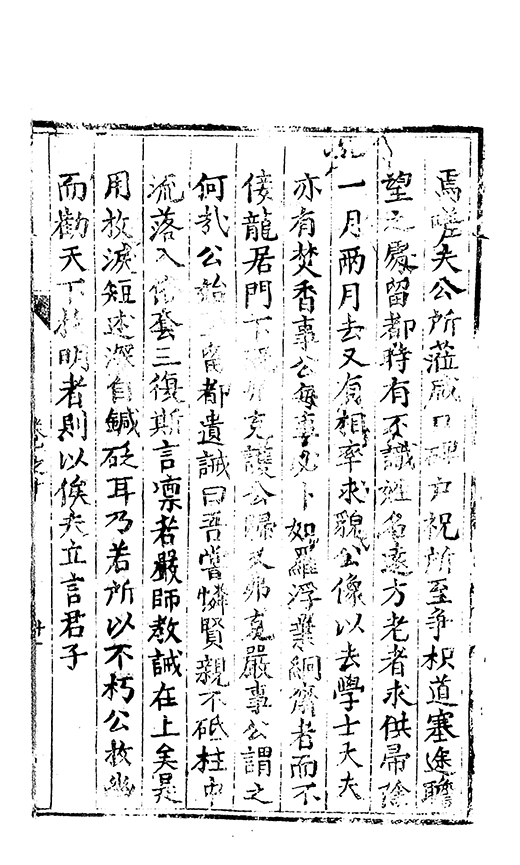 焉嗟夫公所蒞咸口碑戶祝所至爭枳道塞途瞻
望之處留都時有不識姓名遠方老者求供帚除
一月兩月去又有相率求貌公像以去學士大夫
亦有焚香事公每事必卜如羅浮葉絅齋者而不
佞龍居門下公歸又嚴事公謂之
何哉公留都遺誡曰吾嘗憐賢親不砥柱中
流落入俗套三復斯言凛若嚴師教誡在上矣是
用抆淚短述深自鍼砭耳乃若所以不朽公敉幽
而勸天下於明者則以俟夫立言君子